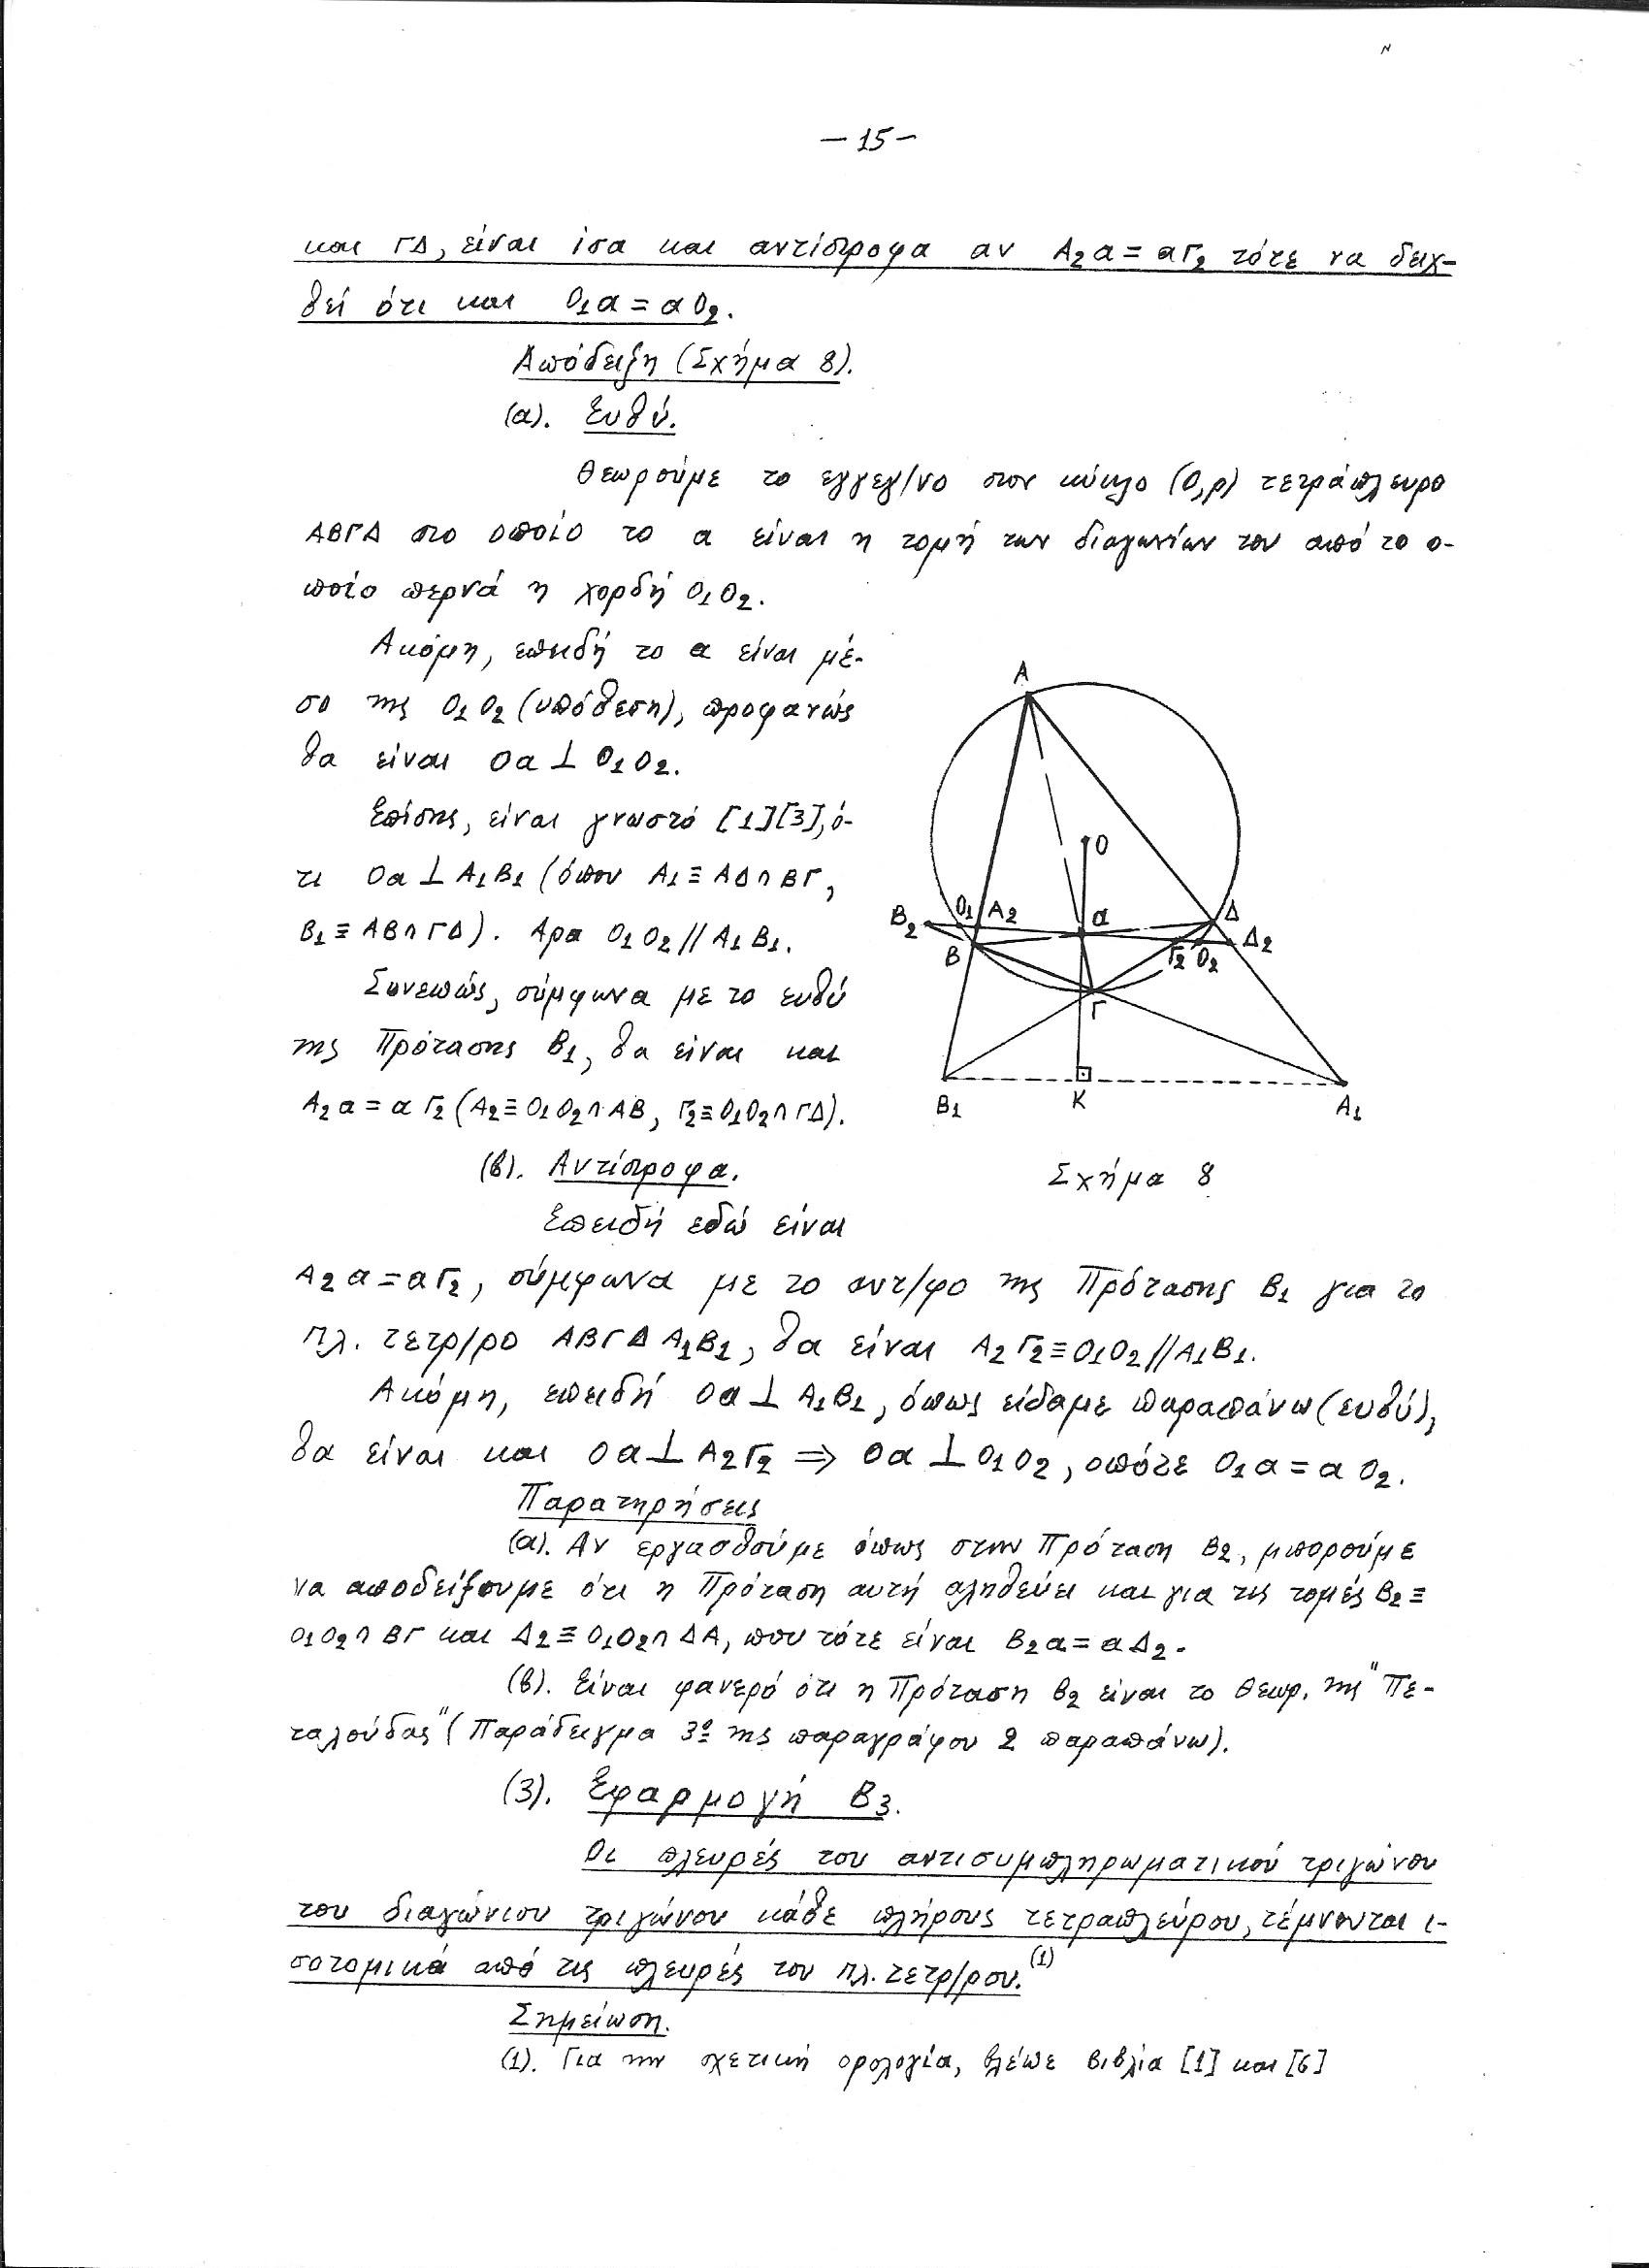 — 15 —
και ΓΔ, είναι ίσα και αντίστροφα αν Α₂α = αΓ₂ τότε να δειχ-
θεί ότι και Ο₁α = αΟ₂.
Απόδειξη (Σχήμα 8).
(α). Ευθύ.
Θεωρούμε το εγγεγ/νο στον κύκλο (Ο,ρ) τετράπλευρο
ΑΒΓΔ στο οποίο το α είναι η τομή των διαγωνίων του από το ο-
ποίο περνά η χορδή Ο₁Ο₂.
Ακόμη, επειδή το α είναι μέ-
σο της Ο₁Ο₂ (υπόθεση), προφανώς
θα είναι Οα ⊥ Ο₁Ο₂.
Επίσης, είναι γνωστό [1][3], ό-
τι Οα ⊥ Α₁Β₁ (όπου Α₁ ≡ ΑΔ∩ΒΓ,
Β₁ ≡ ΑΒ∩ΓΔ). Αρα Ο₁Ο₂ // Α₁Β₁.
Συνεπώς, σύμφωνα με το ευθύ
της Πρότασης Β₁, θα είναι και
Α₂α = αΓ₂ (Α₂ ≡ Ο₁Ο₂∩ΑΒ, Γ₂ ≡ Ο₁Ο₂∩ΓΔ).
Α
Ο
Β₂ Ο₁ Α₂ α Δ
Β Γ₂ Ο₂ Δ₂
Γ
Β₁ Κ Α₁
Σχήμα 8
(β). Αντίστροφα.
Επειδή εδώ είναι
Α₂α = αΓ₂, σύμφωνα με το αντ/φο της Πρότασης Β₁ για το
πλ. τετρ/ρο ΑΒΓΔΑ₁Β₁, θα είναι Α₂Γ₂ ≡ Ο₁Ο₂ // Α₁Β₁.
Ακόμη, επειδή Οα ⊥ Α₁Β₁, όπως είδαμε παραπάνω (ευθύ),
θα είναι και Οα ⊥ Α₂Γ₂ ⇒ Οα ⊥ Ο₁Ο₂, οπότε Ο₁α = αΟ₂.
Παρατηρήσεις
(α). Αν εργασθούμε όπως στην Πρόταση Β₂, μπορούμε
να αποδείξουμε ότι η Πρόταση αυτή αληθεύει και για τις τομές Β₂ ≡
Ο₁Ο₂∩ΒΓ και Δ₂ ≡ Ο₁Ο₂∩ΔΑ, που τότε είναι Β₂α = αΔ₂.
(β). Είναι φανερό ότι η Πρόταση Β₂ είναι το θεωρ. της "Πε-
ταλούδας" (Παράδειγμα 3º της παραγράφου 2 παραπάνω).
(3). Εφαρμογή Β₃.
Οι πλευρές του αντισυμπληρωματικού τριγώνου
του διαγώνιου τριγώνου κάθε πλήρους τετραπλεύρου, τέμνονται ι-
σοτομικά από τις πλευρές του πλ. τετρ/ρου.⁽¹⁾
Σημείωση.
(1). Για την σχετική ορολογία, βλέπε βιβλία [1] και [6]